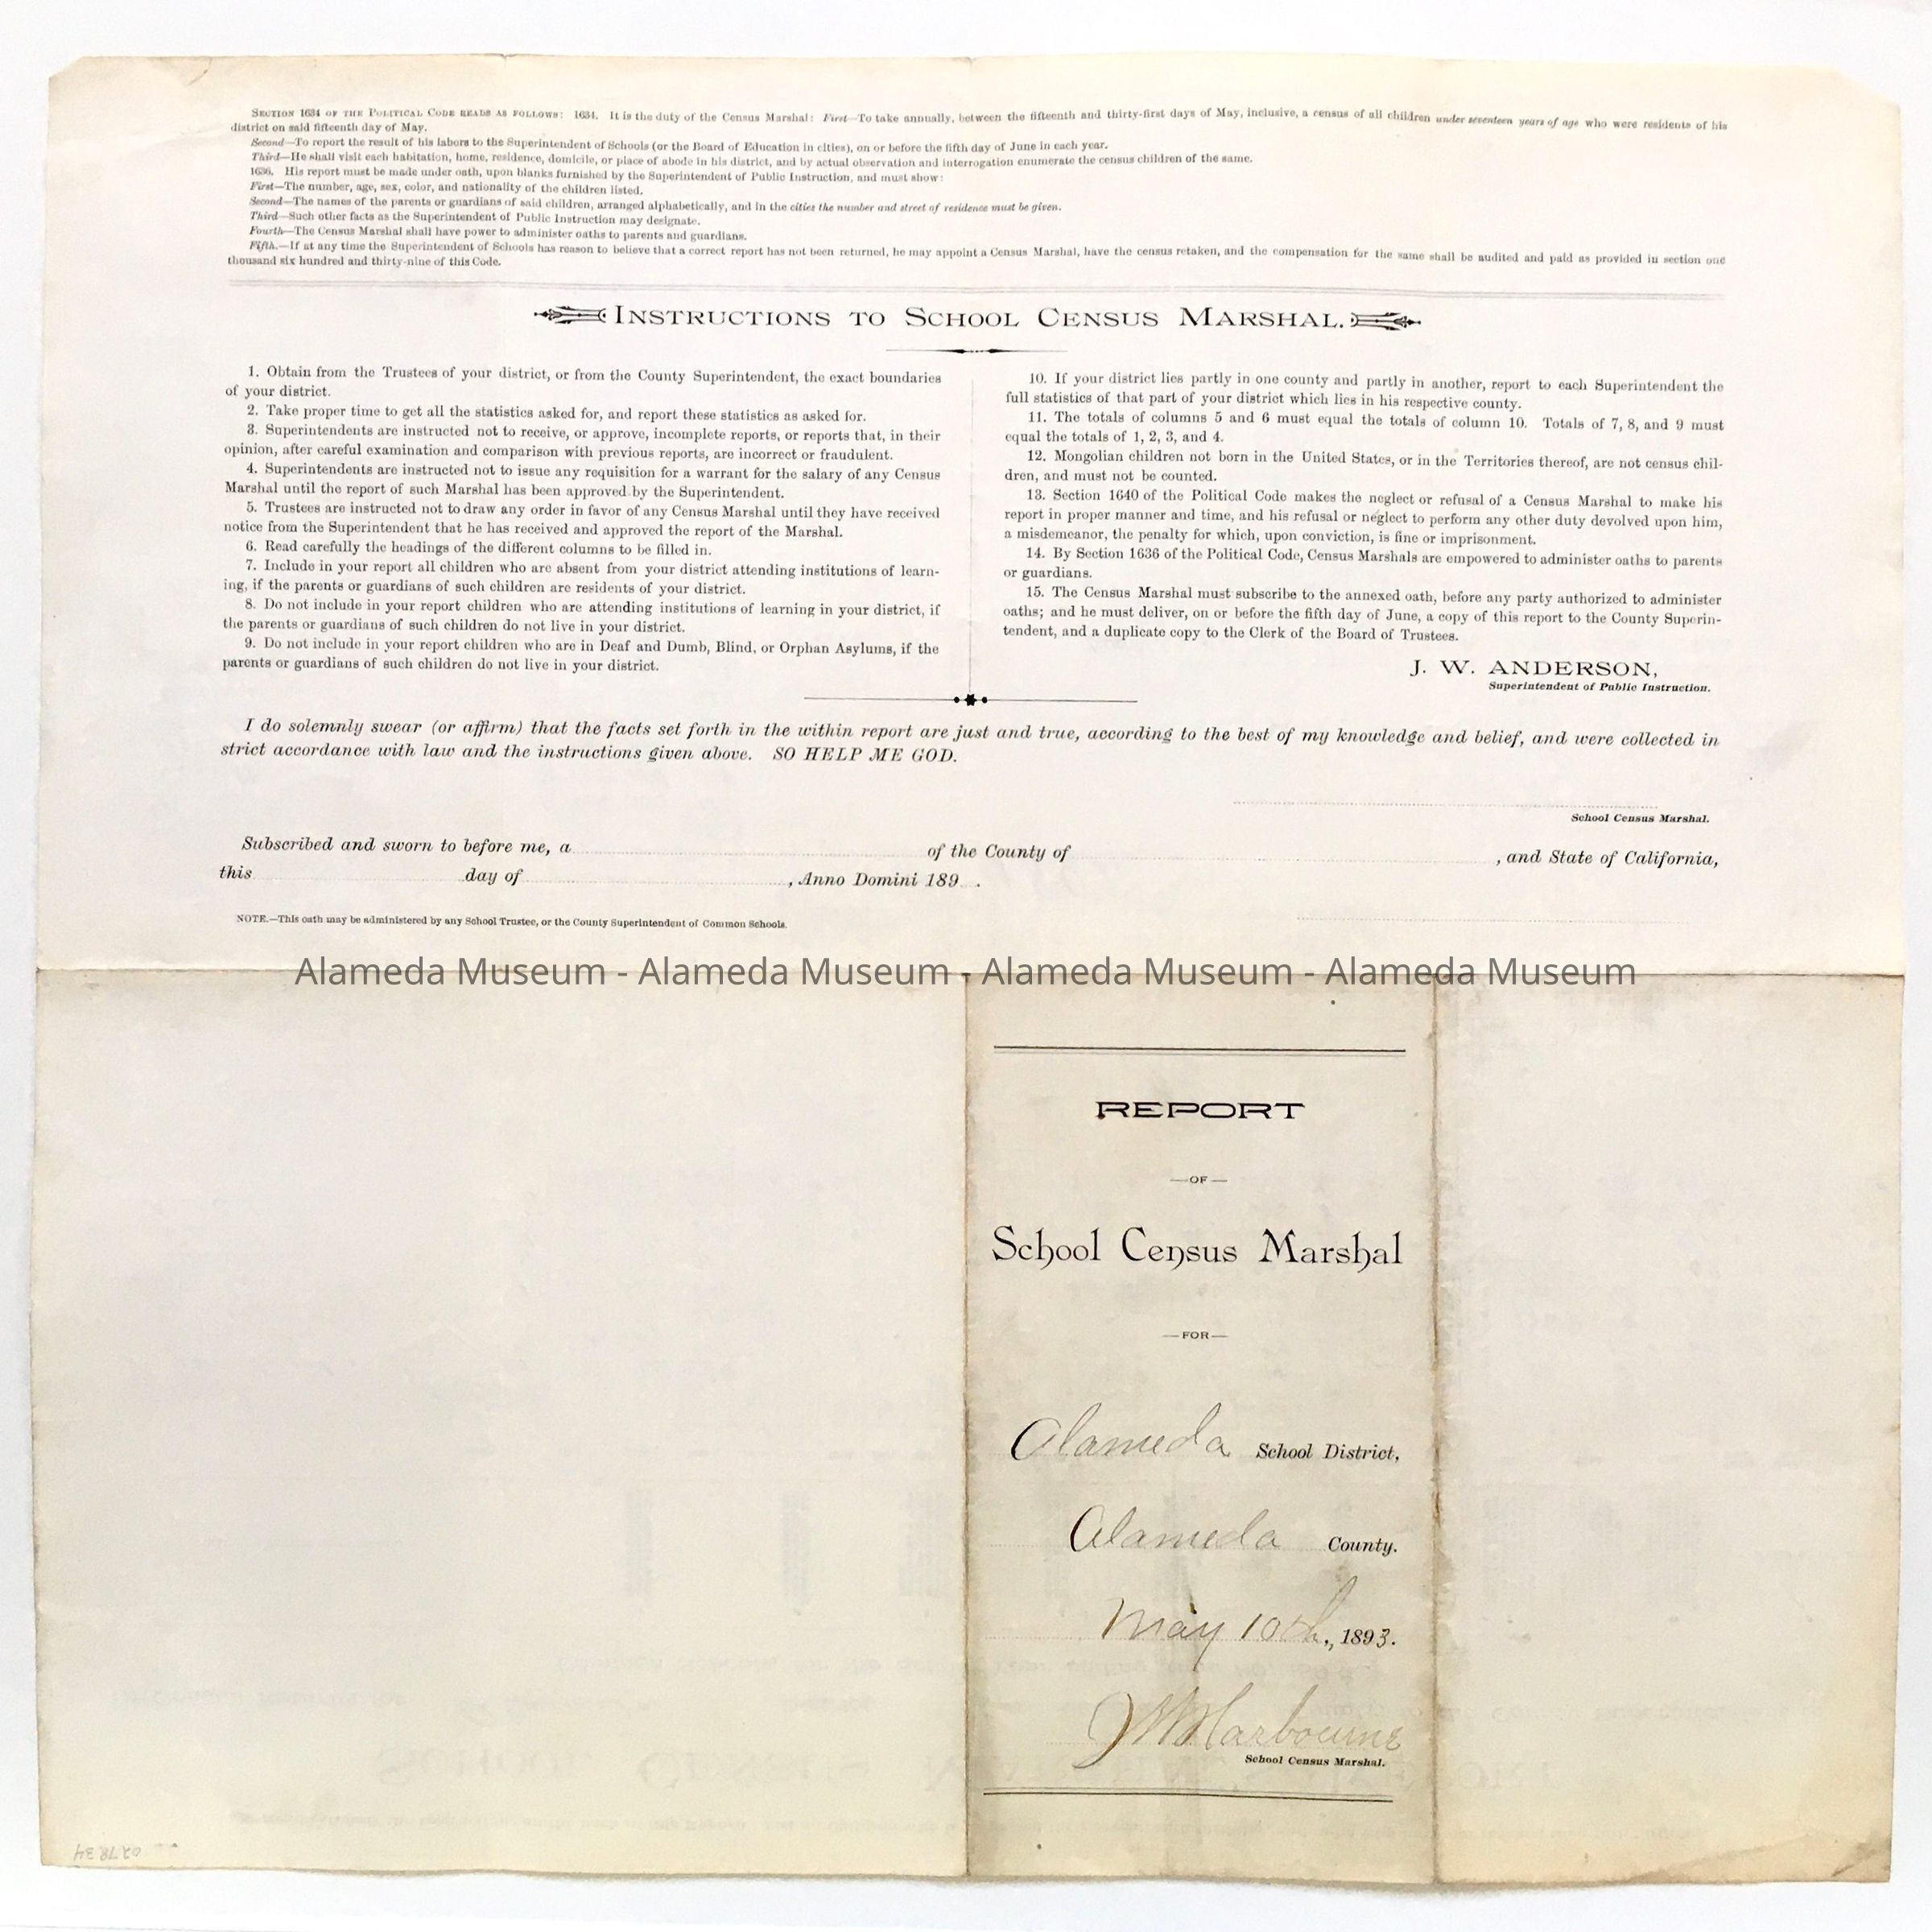 SECTION 1634 OF THE POLITICAL CODE READS AS FOLLOWS: 1634. It is the duty of the Census Marshal: First—To take annually, between the fifteenth and thirty-first days of May, inclusive, a census of all children under seventeen years of age who were residents of his
district on said fifteenth day of May.
Second—To report the result of his labors to the Superintendent of Schools (or the Board of Education in cities), on or before the fifth day of June in each year.
Third—He shall visit each habitation, home, residence, domicile, or place of abode in his district, and by actual observation and interrogation enumerate the census children of the same.
1636. His report must be made under oath, upon blanks furnished by the Superintendent of Public Instruction, and must show:
First—The number, age, sex, color, and nationality of the children listed.
Second—The names of the parents or guardians of said children, arranged alphabetically, and in the cities the number and street of residence must be given.
Third—Such other facts as the Superintendent of Public Instruction may designate.
Fourth—The Census Marshal shall have power to administer oaths to parents and guardians.
Fifth.—If at any time the Superintendent of Schools has reason to believe that a correct report has not been returned, he may appoint a Census Marshal, have the census retaken, and the compensation for the same shall be audited and paid as provided in section one
thousand six hundred and thirty-nine of this Code.
INSTRUCTIONS TO SCHOOL CENSUS MARSHAL.
1. Obtain from the Trustees of your district, or from the County Superintendent, the exact boundaries
of your district.
2. Take proper time to get all the statistics asked for, and report these statistics as asked for.
3. Superintendents are instructed not to receive, or approve, incomplete reports, or reports that, in their
opinion, after careful examination and comparison with previous reports, are incorrect or fraudulent.
4. Superintendents are instructed not to issue any requisition for a warrant for the salary of any Census
Marshal until the report of such Marshal has been approved by the Superintendent.
5. Trustees are instructed not to draw any order in favor of any Census Marshal until they have received
notice from the Superintendent that he has received and approved the report of the Marshal.
6. Read carefully the headings of the different columns to be filled in.
7. Include in your report all children who are absent from your district attending institutions of learn-
ing, if the parents or guardians of such children are residents of your district.
8. Do not include in your report children who are attending institutions of learning in your district, if
the parents or guardians of such children do not live in your district.
9. Do not include in your report children who are in Deaf and Dumb, Blind, or Orphan Asylums, if the
parents or guardians of such children do not live in your district.
10. If your district lies partly in one county and partly in another, report to each Superintendent the
full statistics of that part of your district which lies in his respective county.
11. The totals of columns 5 and 6 must equal the totals of column 10. Totals of 7, 8, and 9 must
equal the totals of 1, 2, 3, and 4.
12. Mongolian children not born in the United States, or in the Territories thereof, are not census chil-
dren, and must not be counted.
13. Section 1640 of the Political Code makes the neglect or refusal of a Census Marshal to make his
report in proper manner and time, and his refusal or neglect to perform any other duty devolved upon him,
a misdemeanor, the penalty for which, upon conviction, is fine or imprisonment.
14. By Section 1636 of the Political Code, Census Marshals are empowered to administer oaths to parents
or guardians.
15. The Census Marshal must subscribe to the annexed oath, before any party authorized to administer
oaths; and he must deliver, on or before the fifth day of June, a copy of this report to the County Superin-
tendent, and a duplicate copy to the Clerk of the Board of Trustees.
J. W. ANDERSON,
Superintendent of Public Instruction.
I do solemnly swear (or affirm) that the facts set forth in the within report are just and true, according to the best of my knowledge and belief, and were collected in
strict accordance with law and the instructions given above. SO HELP ME GOD.
School Census Marshal.
Subscribed and sworn to before me, a of the County of , and State of California,
this day of , Anno Domini 189 .
NOTE.—This oath may be administered by any School Trustee, or the County Superintendent of Common Schools.
Alameda Museum - Alameda Museum - Alameda Museum - Alameda Museum
REPORT
—OF—
School Census Marshal
—FOR—
Alameda School District,
Alameda County.
May 10th, 1893.
J W Harbourne
School Census Marshal.